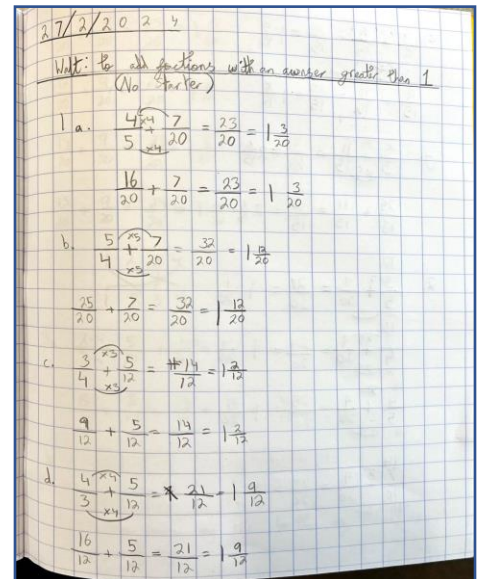 27/2/2024
Walt: to add factions with an awnser greater than 1
(No tarter)
1 a. 4/5 ×4 + ×4 7/20 = 23/20 = 1 3/20
16/20 + 7/20 = 23/20 = 1 3/20
b. 5/4 ×5 + ×5 7/20 = 32/20 = 1 12/20
25/20 + 7/20 = 32/20 = 1 12/20
c. 3/4 ×3 + ×3 5/12 = 14/12 = 1 2/12
9/12 + 5/12 = 14/12 = 1 2/12
d. 4/3 ×4 + ×4 5/12 = 21/12 = 1 9/12
16/12 + 5/12 = 21/12 = 1 9/12